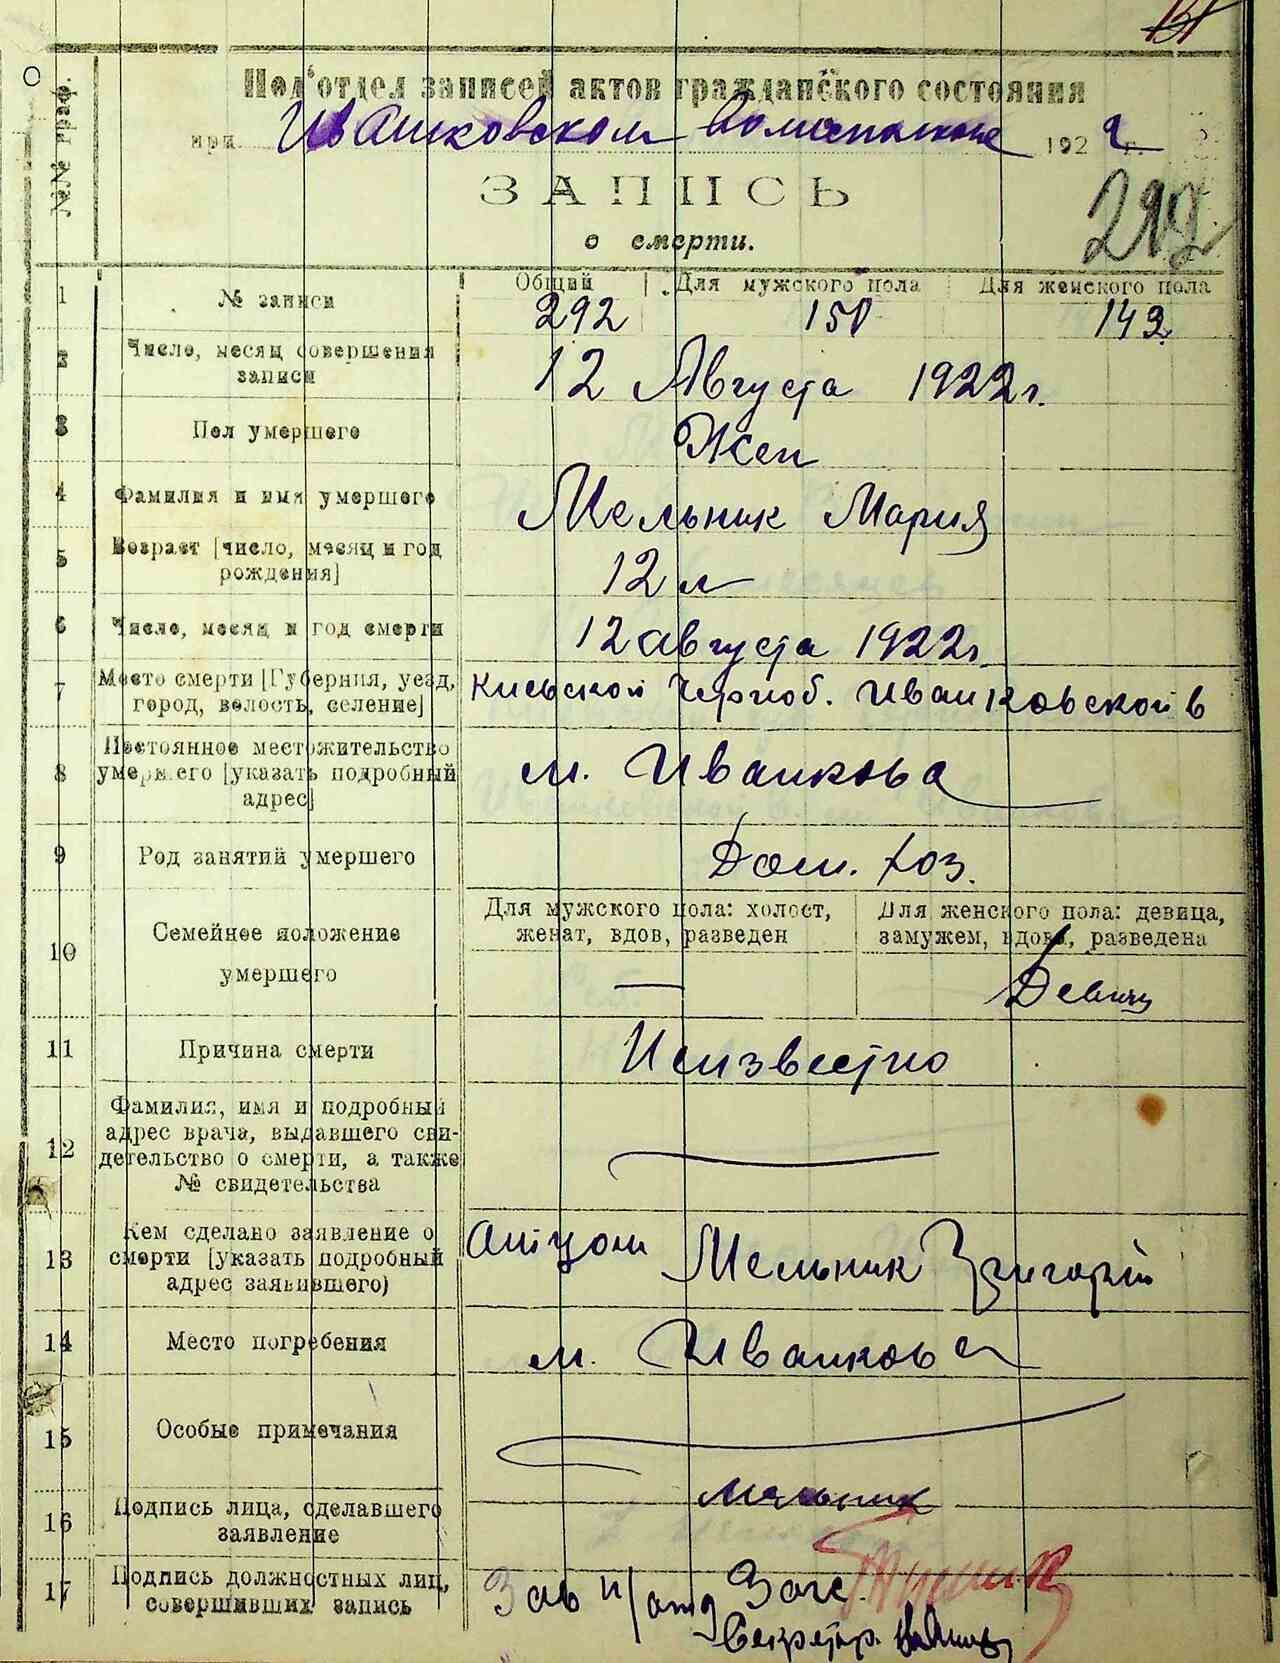 131
№№ граф.
Под'отдел записей актов гражданского состояния
при Иванковском Волисполкоме 1922 г.
292
ЗАПИСЬ
о смерти.
1 № записи Общий Для мужского пола Для женского пола
292 150 142
2 Число, месяц совершения записи
12 Августа 1922 г.
3 Пол умершего Жен
4 Фамилия и имя умершего Мельник Мария
5 Возраст [число, месяц и год рождения] 12 л
6 Число, месяц и год смерти 12 августа 1922 г.
7 Место смерти [Губерния, уезд, город, волость, селение]
Киевской Черноб. Иванковской в
8 Постоянное местожительство умершего [указать подробный адрес]
м. Иванкова
9 Род занятий умершего Дом. Хоз.
10 Семейное положение умершего
Для мужского пола: холост, женат, вдов, разведен
Для женского пола: девица, замужем, вдова, разведена
— Девица
11 Причина смерти Неизвестно
12 Фамилия, имя и подробный адрес врача, выдавшего свидетельство о смерти, а также № свидетельства
13 Кем сделано заявление о смерти [указать подробный адрес заявившего)
Атцом Мельник Григорій
14 Место погребения м. Иванкова
15 Особые примечания
16 Подпись лица, сделавшего заявление
Мельник
17 Подпись должностных лиц, совершивших запись
Зав п/отд Загс.
Секретар.